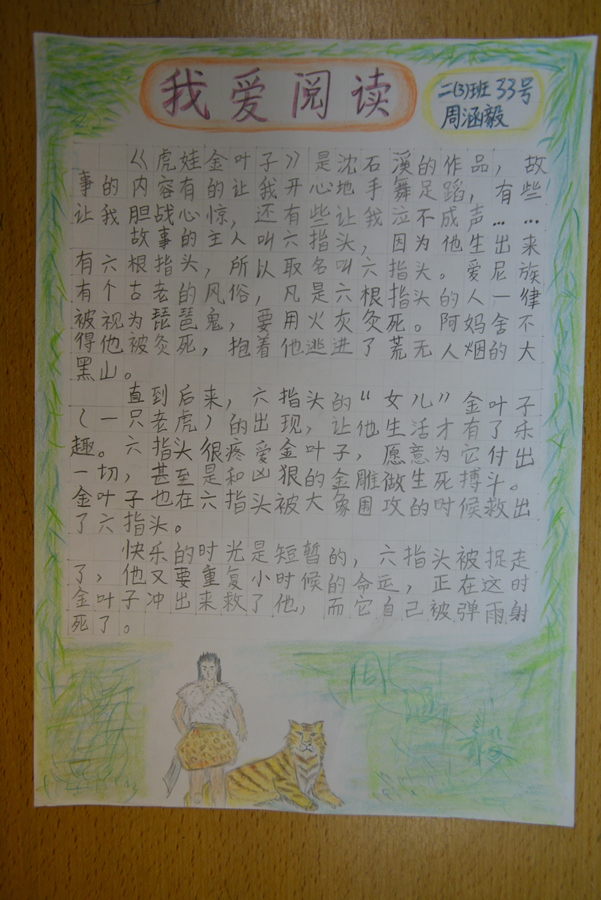 我爱阅读
二(3)班 33号
周涵毅
《虎娃金叶子》是沈石溪的作品，故
事的内容有的让我开心地手舞足蹈，有些
让我胆战心惊，还有些让我泣不成声……
故事的主人叫六指头，因为他生出来
有六根指头，所以取名叫六指头。爱尼族
有个古老的风俗，凡是六根指头的人一律
被视为琵琶鬼，要用火灰灸死。阿妈舍不
得他被灸死，抱着他逃进了荒无人烟的大
黑山。
直到后来，六指头的“女儿”金叶子
（一只老虎）的出现，让他生活才有了乐
趣。六指头很疼爱金叶子，愿意为它付出
一切，甚至是和凶狠的金雕做生死搏斗。
金叶子也在六指头被大象围攻的时候救出
了六指头。
快乐的时光是短暂的，六指头被捉走
了，他又要重复小时候的命运，正在这时
金叶子冲出来救了他，而它自己被弹雨射
死了。
周涵毅